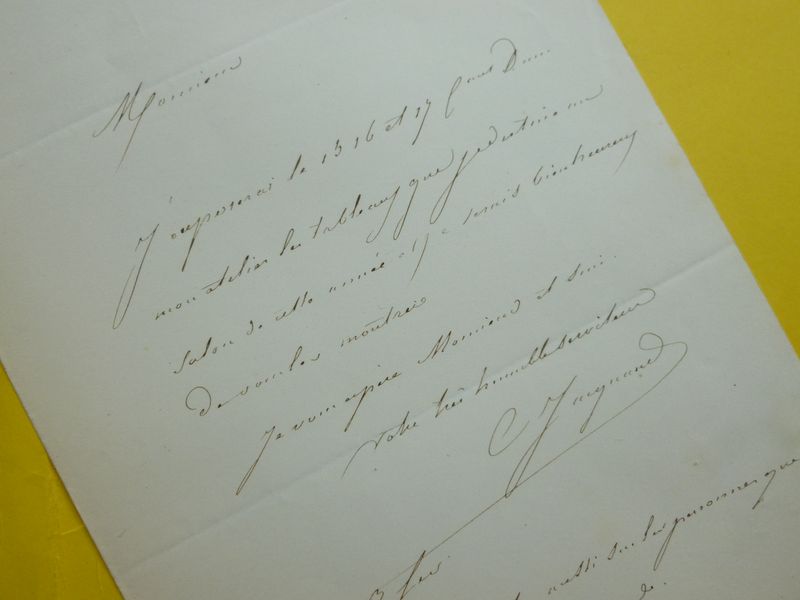 Monsieur
J'exposerai le 15 16 et 17 Cous Dans
mon atelier les tableaux que je destine au
Salon de cette année et je serais bienheureux
De vous les montrer
Je vous espère Monsieur et suis
votre très humble serviteur
C Jacquand
aussi sur les personnes que
de.